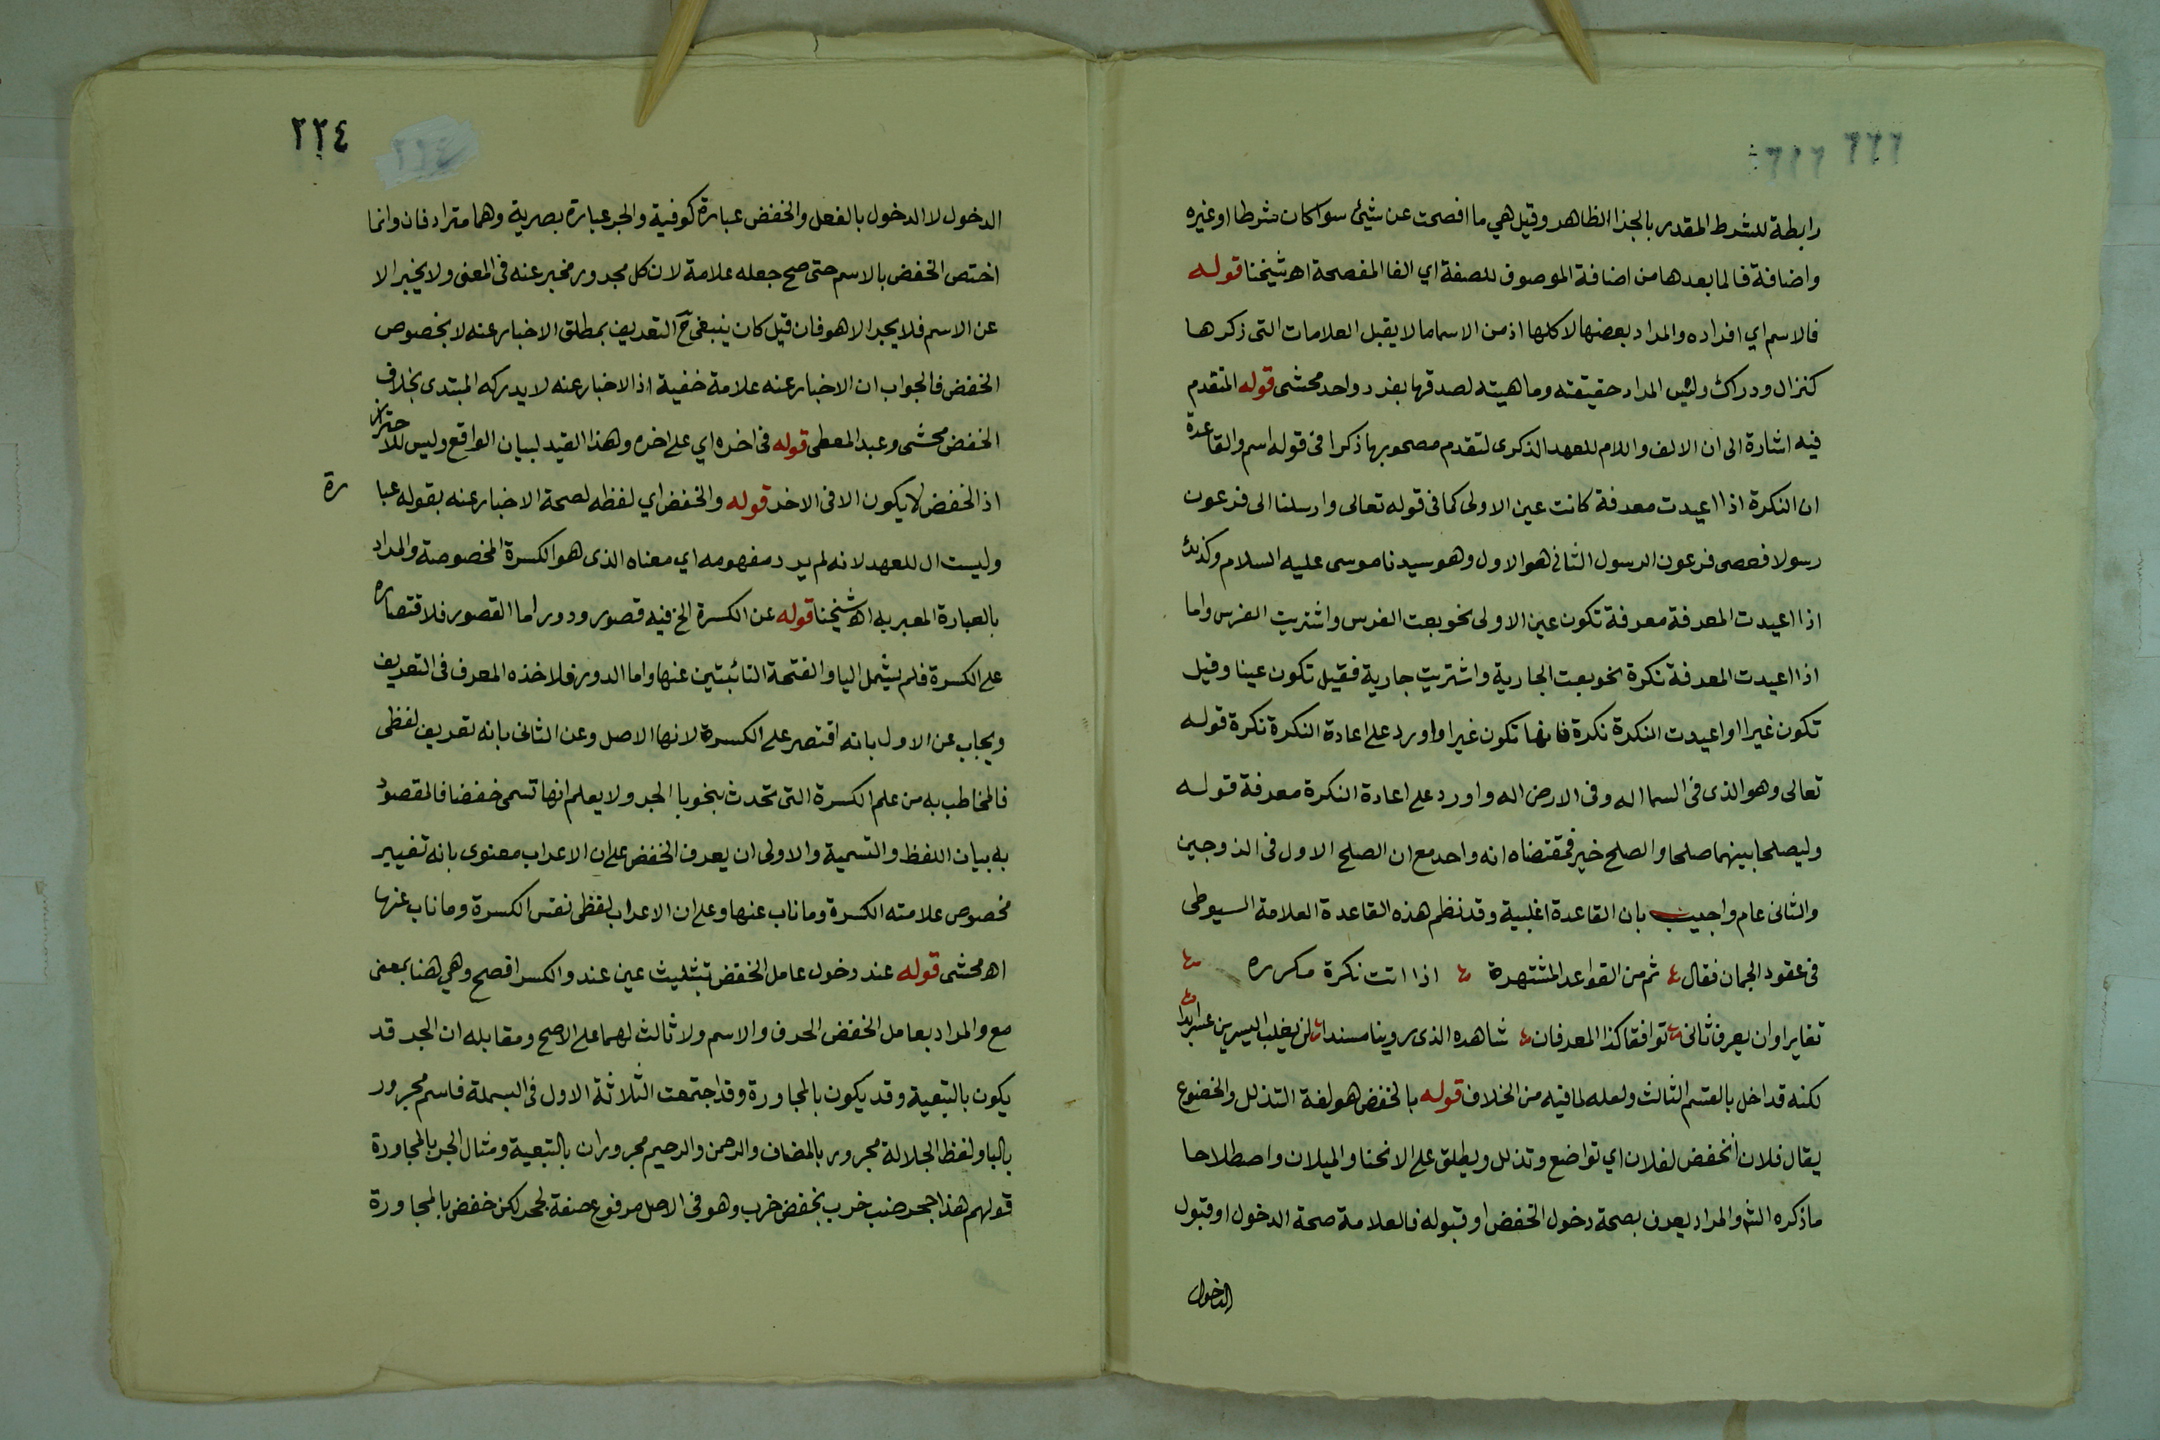 رابطة للشرط المقدر بالجزا الظاهر وقيل هي ما افصحت عن شيئ سوا كان شرطا او غيره
واضافة فا لما بعدها من اضافة الموصوف للصفة اي الفا المفصحة اه شيخنا قوله
فالاسم اي افراده والمراد بعضها لا كلها اذ من الاسما ما لا يقبل العلامات التى ذكرها
كنزال ودراك وليس المراد حقيقته وماهيته لصدقها بفرد واحد محشى قوله المتقدم
فيه اشارة الى ان الالف واللام للعهد الذكرى لتقدم مصحوبها ذكرا فى قوله اسم والقاعدة
ان النكرة اذا اعيدت معرفة كانت عين الاولى كما فى قوله تعالى وارسلنا الى فرعون
رسولا فعصى فرعون الرسول الثانى هو الاول وهو سيدنا موسى عليه السلام وكذلك
اذا اعيدت المعرفة معرفة تكون عين الاولى نحو بعت الفرس واشتريت الفرس واما
اذا اعيدت المعرفة نكرة نحو بعت الجارية واشتريت جارية فقيل تكون عينا وقيل
تكون غيرا او اعيدت النكرة نكرة فانها تكون غيرا واورد على اعادة النكرة نكرة قوله
تعالى وهو الذى فى السما اله وفى الارض اله واورد على اعادة النكرة معرفة قوله
وليصلحا بينهما صلحا والصلح خير فمقتضاه انه واحد مع ان الصلح الاول فى الزوجين
والثانى عام واجيب بان القاعدة اغلبية وقد نظم هذه القاعدة العلامة السيوطى
فى عقود الجمان فقال ثم من القواعد المشتهرة اذا اتت نكرة مكرره
تغايرا وان يعرف ثانى توافقا كذا المعرفان شاهده الذى روينا مسندا لن يغلب اليسرين عسر ابدا
لكنه قد اخل بالقسم الثالث ولعله لما فيه من الخلاف قوله بالخفض هو لغة التذلل والخضوع
يقال فلان انخفض لفلان اي تواضع وتذلل ويطلق على الانحنا والميلان واصطلاحا
ما ذكره الش والمراد يعرف بصحة دخول الخفض او قبوله فالعلامة صحة الدخول او قبول
الدخول
٢٢٤
الدخول لا الدخول بالفعل والخفض عبارة كوفية والجر عبارة بصرية وهما مترادفان وانما
اختص الخفض بالاسم حتى صح جعله علامة لان كل مجرور مخبر عنه فى المعنى ولا يخبر الا
عن الاسم فلا يجر الا هو فان قيل كان ينبغى ح التعريف بمطلق الاخبار عنه لا بخصوص
الخفض فالجواب ان الاخبار عنه علامة خفية اذ الاخبار عنه لا يدركه المبتدى بخلاف
الخفض محشى وعبد المعطى قوله فى اخره اي على اخره وهذا القيد لبيان الواقع وليس للاحتراز
اذ الخفض لا يكون الا فى الاخر قوله والخفض اي لفظه لصحة الاخبار عنه بقوله عبارة
وليست ال للعهد لانه لم يرد مفهومه اي معناه الذى هو الكسرة المخصوصة والمراد
بالعبارة المعبر به اه شيخنا قوله عن الكسرة الخ فيه قصور ودور اما القصور فلاقتصاره
على الكسرة فلم يشمل اليا والفتحة النائبتين عنها واما الدور فلاخذه المعرف فى التعريف
ويجاب عن الاول بانه اقتصر على الكسرة لانها الاصل وعن الثانى بانه تعريف لفظى
فالمخاطب به من علم الكسرة التى تحدث بنحو با الجر ولا يعلم انها تسمى خفضا فالمقصود
به بيان اللفظ والتسمية والاولى ان يعرف الخفض على ان الاعراب معنوى بانه تغيير
مخصوص علامته الكسرة وما ناب عنها وعلى ان الاعراب لفظى نفس الكسرة وما ناب عنها
اه محشى قوله عند دخول عامل الخفض بتثليث عين عند والكسر افصح وهي هنا بمعنى
مع والمراد بعامل الخفض الحرف والاسم ولا ثالث لهما على الاصح ومقابله ان الجر قد
يكون بالتبعية وقد يكون بالمجاورة وقد اجتمعت الثلاثة الاول فى البسملة فاسم مجرور
بالبا ولفظ الجلالة مجرور بالمضاف والرحمن والرحيم مجروران بالتبعية ومثال الجر بالمجاورة
قولهم هذا جحر ضب خرب بخفض خرب وهو فى الاصل مرفوع صفة لجحر لكن خفض بالمجاورة